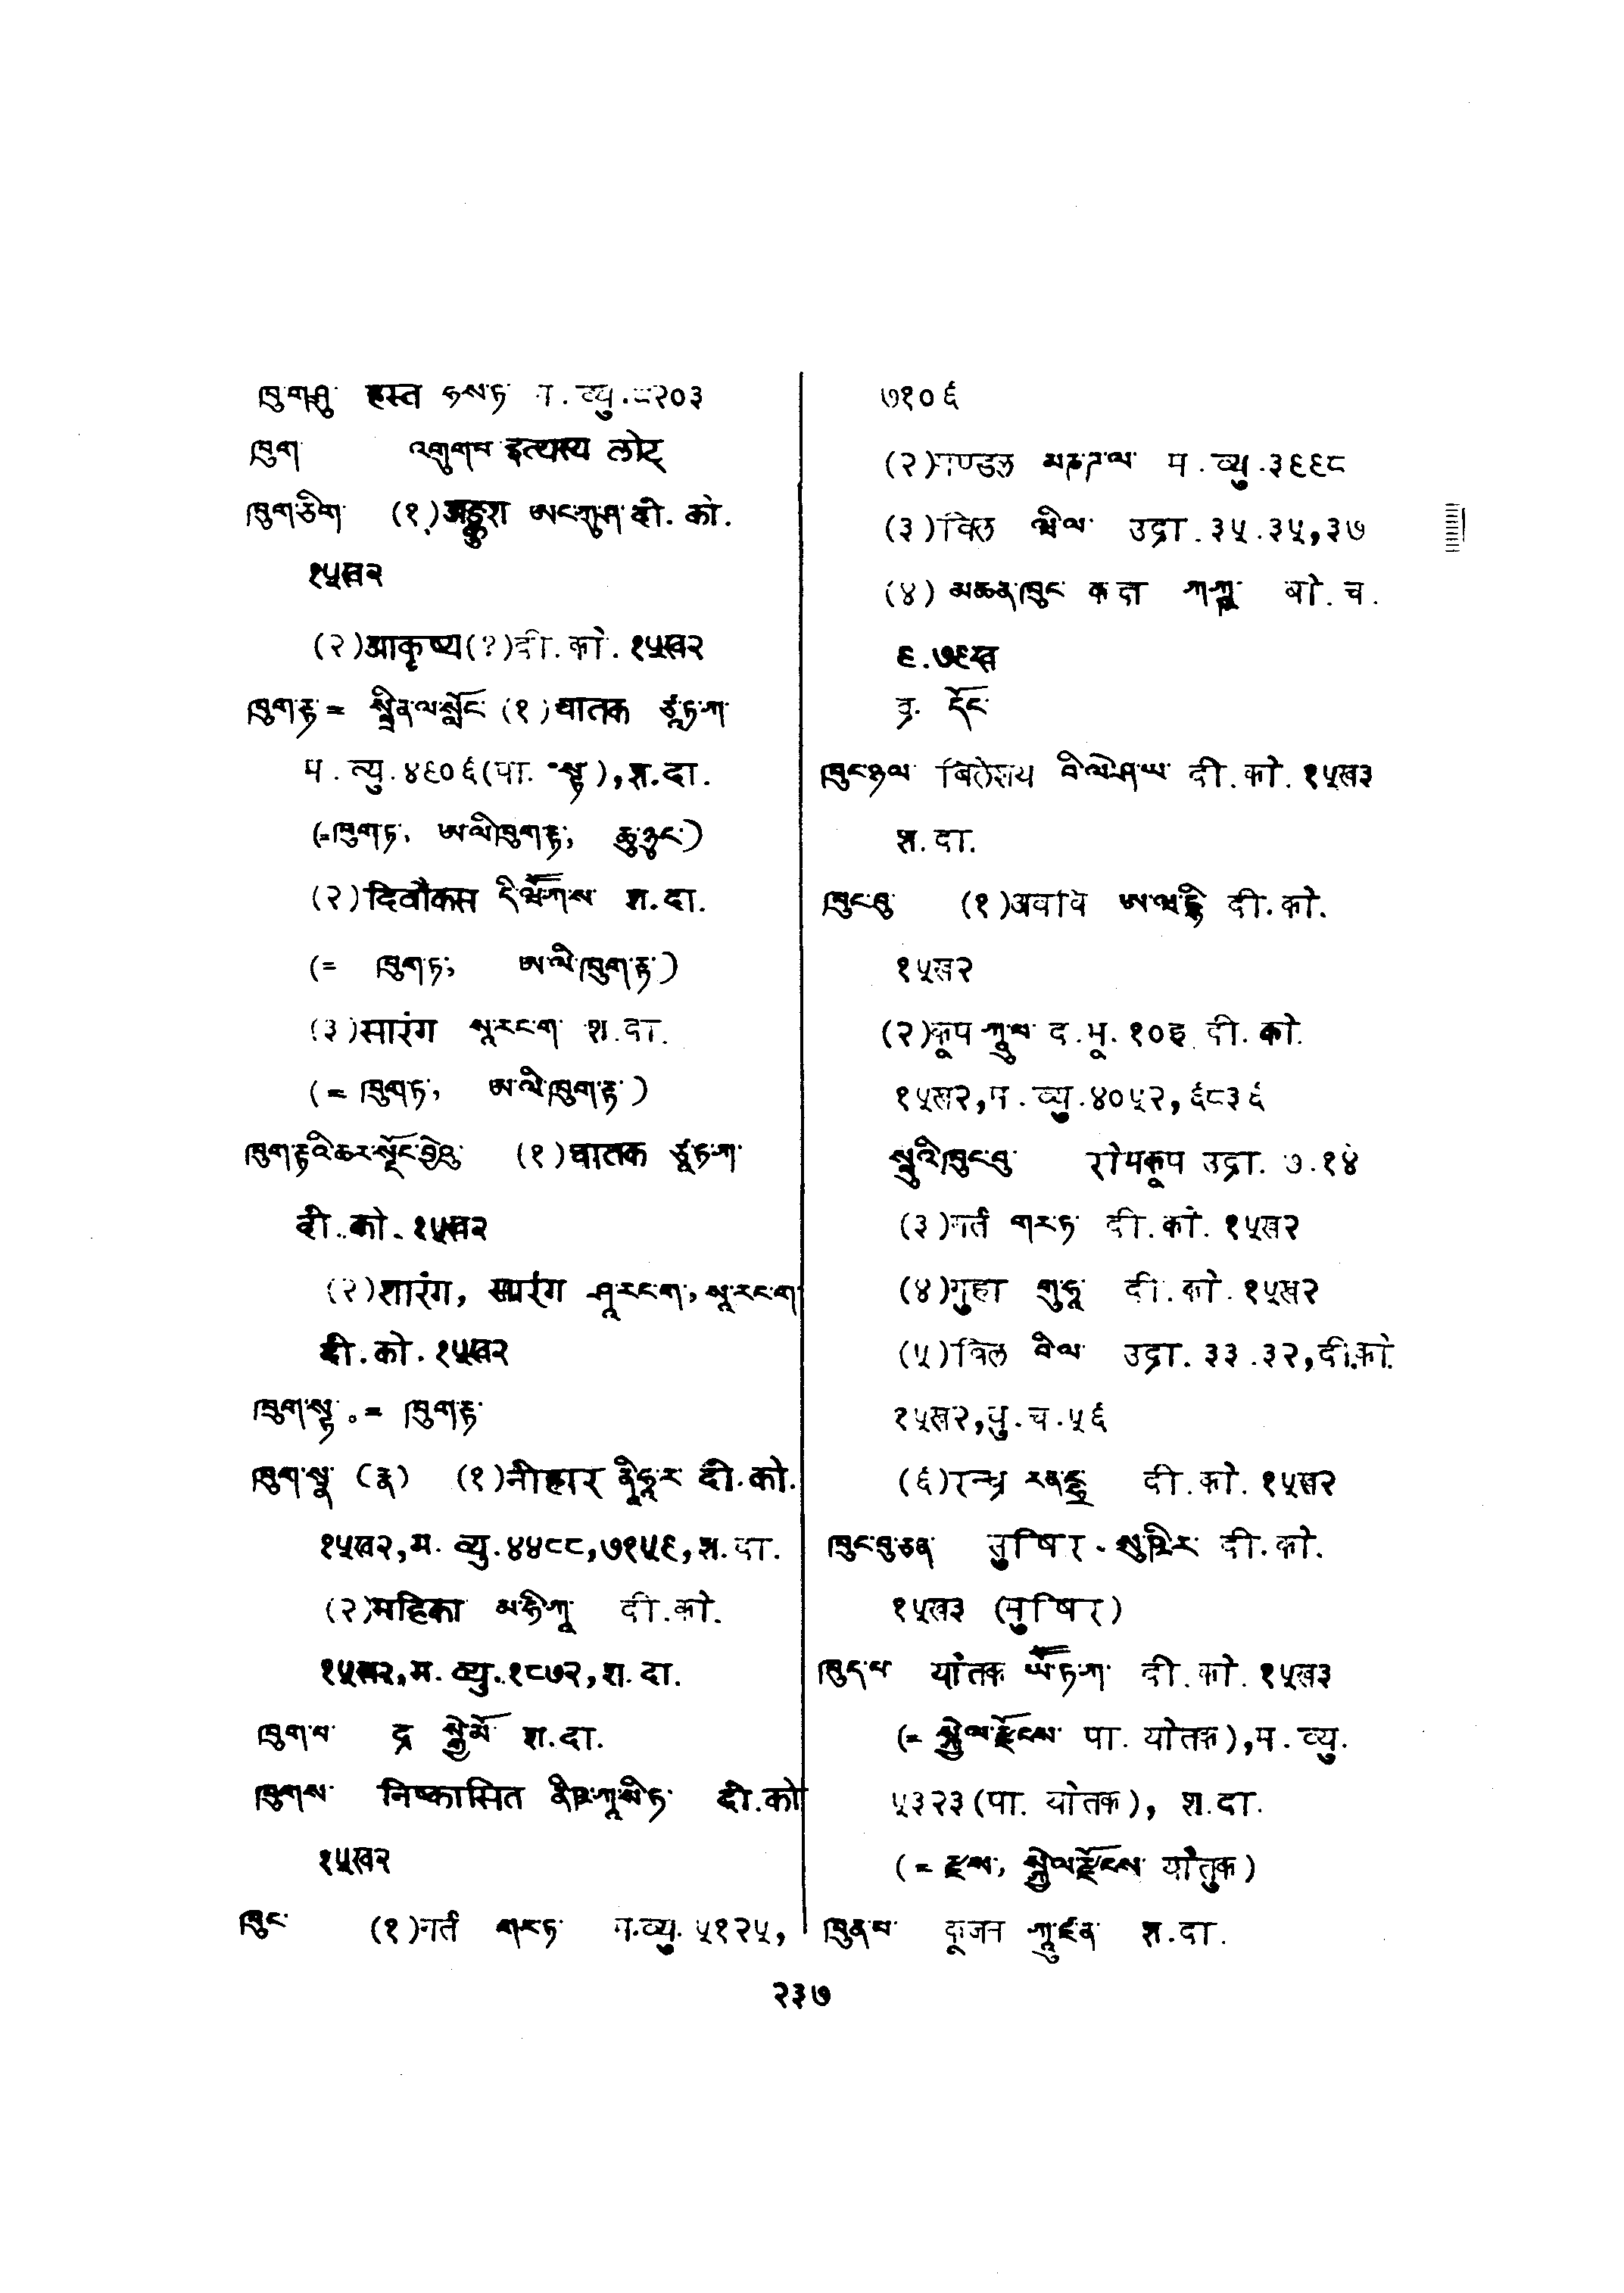 ཁྲུག་ཤུ་ हस्त ཧ་ས་ཏ་ म. व्यु.८२०३
ཁྲུག འགུགས་པ इत्यस्य लोट्
ཁུག་ཅིག (१)अङ्कुश ཨང་ཀུ་ཤ་ दी. को.
१५ख२
(२)आकृष्य(?)दी.को.१५ख२
ཁུག་རྟ་= སྤྲིན་ལ་སློང་(१)चातक ཙཱ་ཏ་ཀ་
म.व्यु.४९०६(पा. ॰སྟ་),श.दा.
(=ཁུག་ཏ་, ཨ་ལི་ཁུག་རྟ་, ཆུ་ཉུང་)
(२)दिवौकस དི་ཝཽ་ཀ་ས་ श.दा.
(= ཁུག་ཏ་, ཨ་ལི་ཁུག་རྟ་)
(३)सारंग སཱ་རང་ག་ श.दा.
(= ཁུག་ཏ་, ཨ་ལི་ཁུག་རྟ་)
(१)चातक ཙཱ་ཏ་ཀ་
दी.को.१५ख२
(२)शारंग, सारंग ཤཱ་རང་ག་, སཱ་རང་ག་
दी.को.१५ख२
ཁུག་སྟ་ ०= ཁུག་རྟ་
ཁུག་སྣ་ (རྣ) (१)नीहार ནཱི་ཧཱ་ར་ दी.को.
१५ख२,म.व्यु.४४८८,७१५९,श.दा.
(२)महिका མ་ཧི་ཀཱ་ दी.को.
१५ख२,म.व्यु.१८७२,श.दा.
ཁུག་པ་ द्र སྐྱེ་མོ་ श.दा.
ཁུགས་ निष्कासित ནིཥ་ཀཱ་སི་ཏ་ दी.को
१५ख२
ཁུང་ (१)गर्त གརྟ་ म.व्यु.५१२५,
७१०६
(२)मण्डल མཎ་ཌ་ལ་ म.व्यु.३९९८
(३)विल ཝི་ལ་ उद्रा.३५.३५,३७
(४) མཆན་ཁུང་ कक्ष ཀཀྵ་ बो.च.
९.७९ख
द्र. དོང་
ཁུང་ཉལ་ बिलेशय བི་ལེ་ཤ་ཡ་ दी.को.१५ख३
श.दा.
ཁུང་བུ་ (१)अवधि ཨ་ཝ་དྷི་ दी.को.
१५ख२
(२)कूप ཀཱུ་པ་ द.भू.१०इ दी.को.
१५ख२,म.व्यु.४०५२,६८३६
སྤུའི་ཁུང་བུ་ रोमकूप उद्रा. ७.१४
(३)गर्त གརྟ་ दी.को.१५ख२
(४)गुहा གུ་ཧཱ་ दी.को.१५ख२
(५)बिल བི་ལ་ उद्रा.३३.३२,दी.को.
१५ख२,पु.च.५६
(६)रन्ध्र རནྡྷྲ་ दी.को.१५ख२
ཁུང་བུ་ཅན་ सुषिर སུ་ཥི་ར་ दी.को.
१५ख३ (सुषिर)
ཁུད་པ་ यौतक ཡཽ་ཏ་ཀ་ दी.को.१५ख३
(= སྐྱེལ་རྫོངས་ पा. योतक),म.व्यु.
५३२३(पा. यौतक), श.दा.
(= རྫས་, སྐྱེལ་རྫོངས་ यौतुक)
ཁུན་པ་ कूजन ཀཱུ་ཛ་ན་ श.दा.
२३७